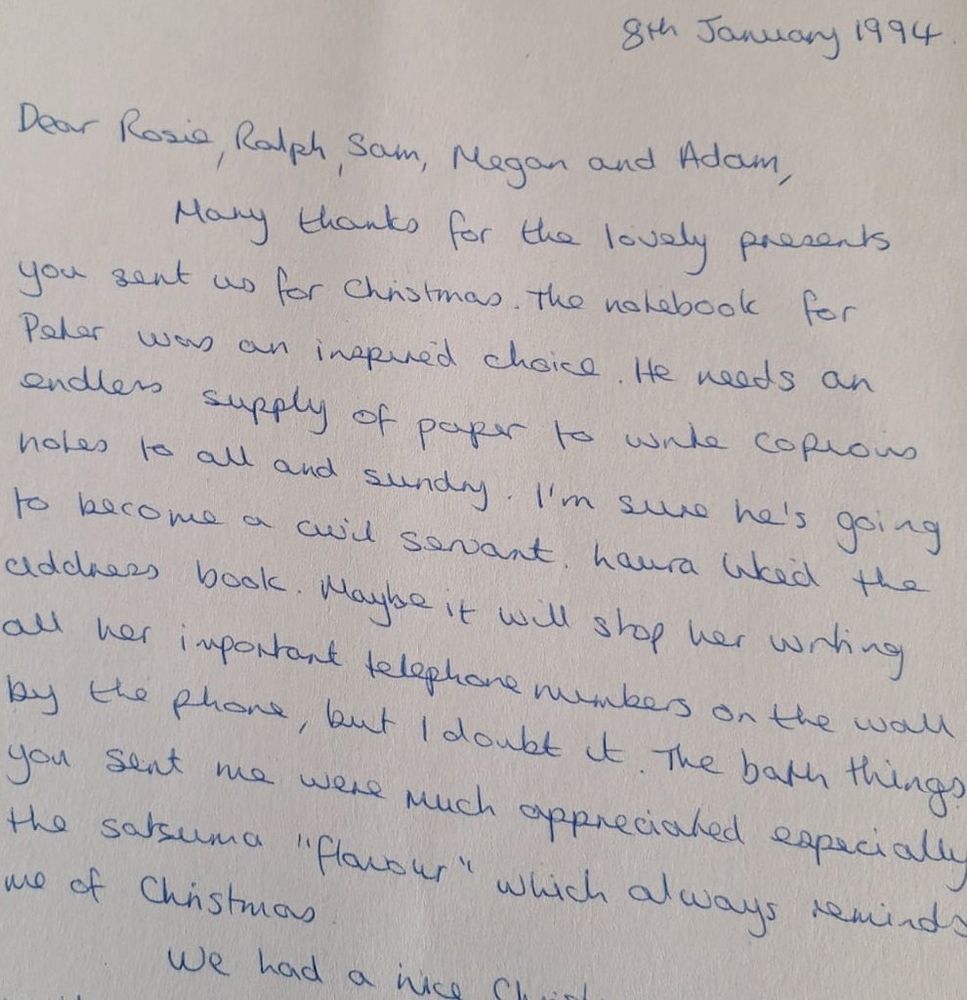 8th January 1994.
Dear Rosie, Ralph, Sam, Megan and Adam,
Many thanks for the lovely presents
you sent us for Christmas. The notebook for
Peter was an inspired choice. He needs an
endless supply of paper to write copious
notes to all and sundry. I'm sure he's going
to become a civil servant. Laura liked the
address book. Maybe it will stop her writing
all her important telephone numbers on the wall
by the phone, but I doubt it. The bath things
you sent me were much appreciated especially
the satsuma "flavour" which always reminds
me of Christmas.
We had a nice